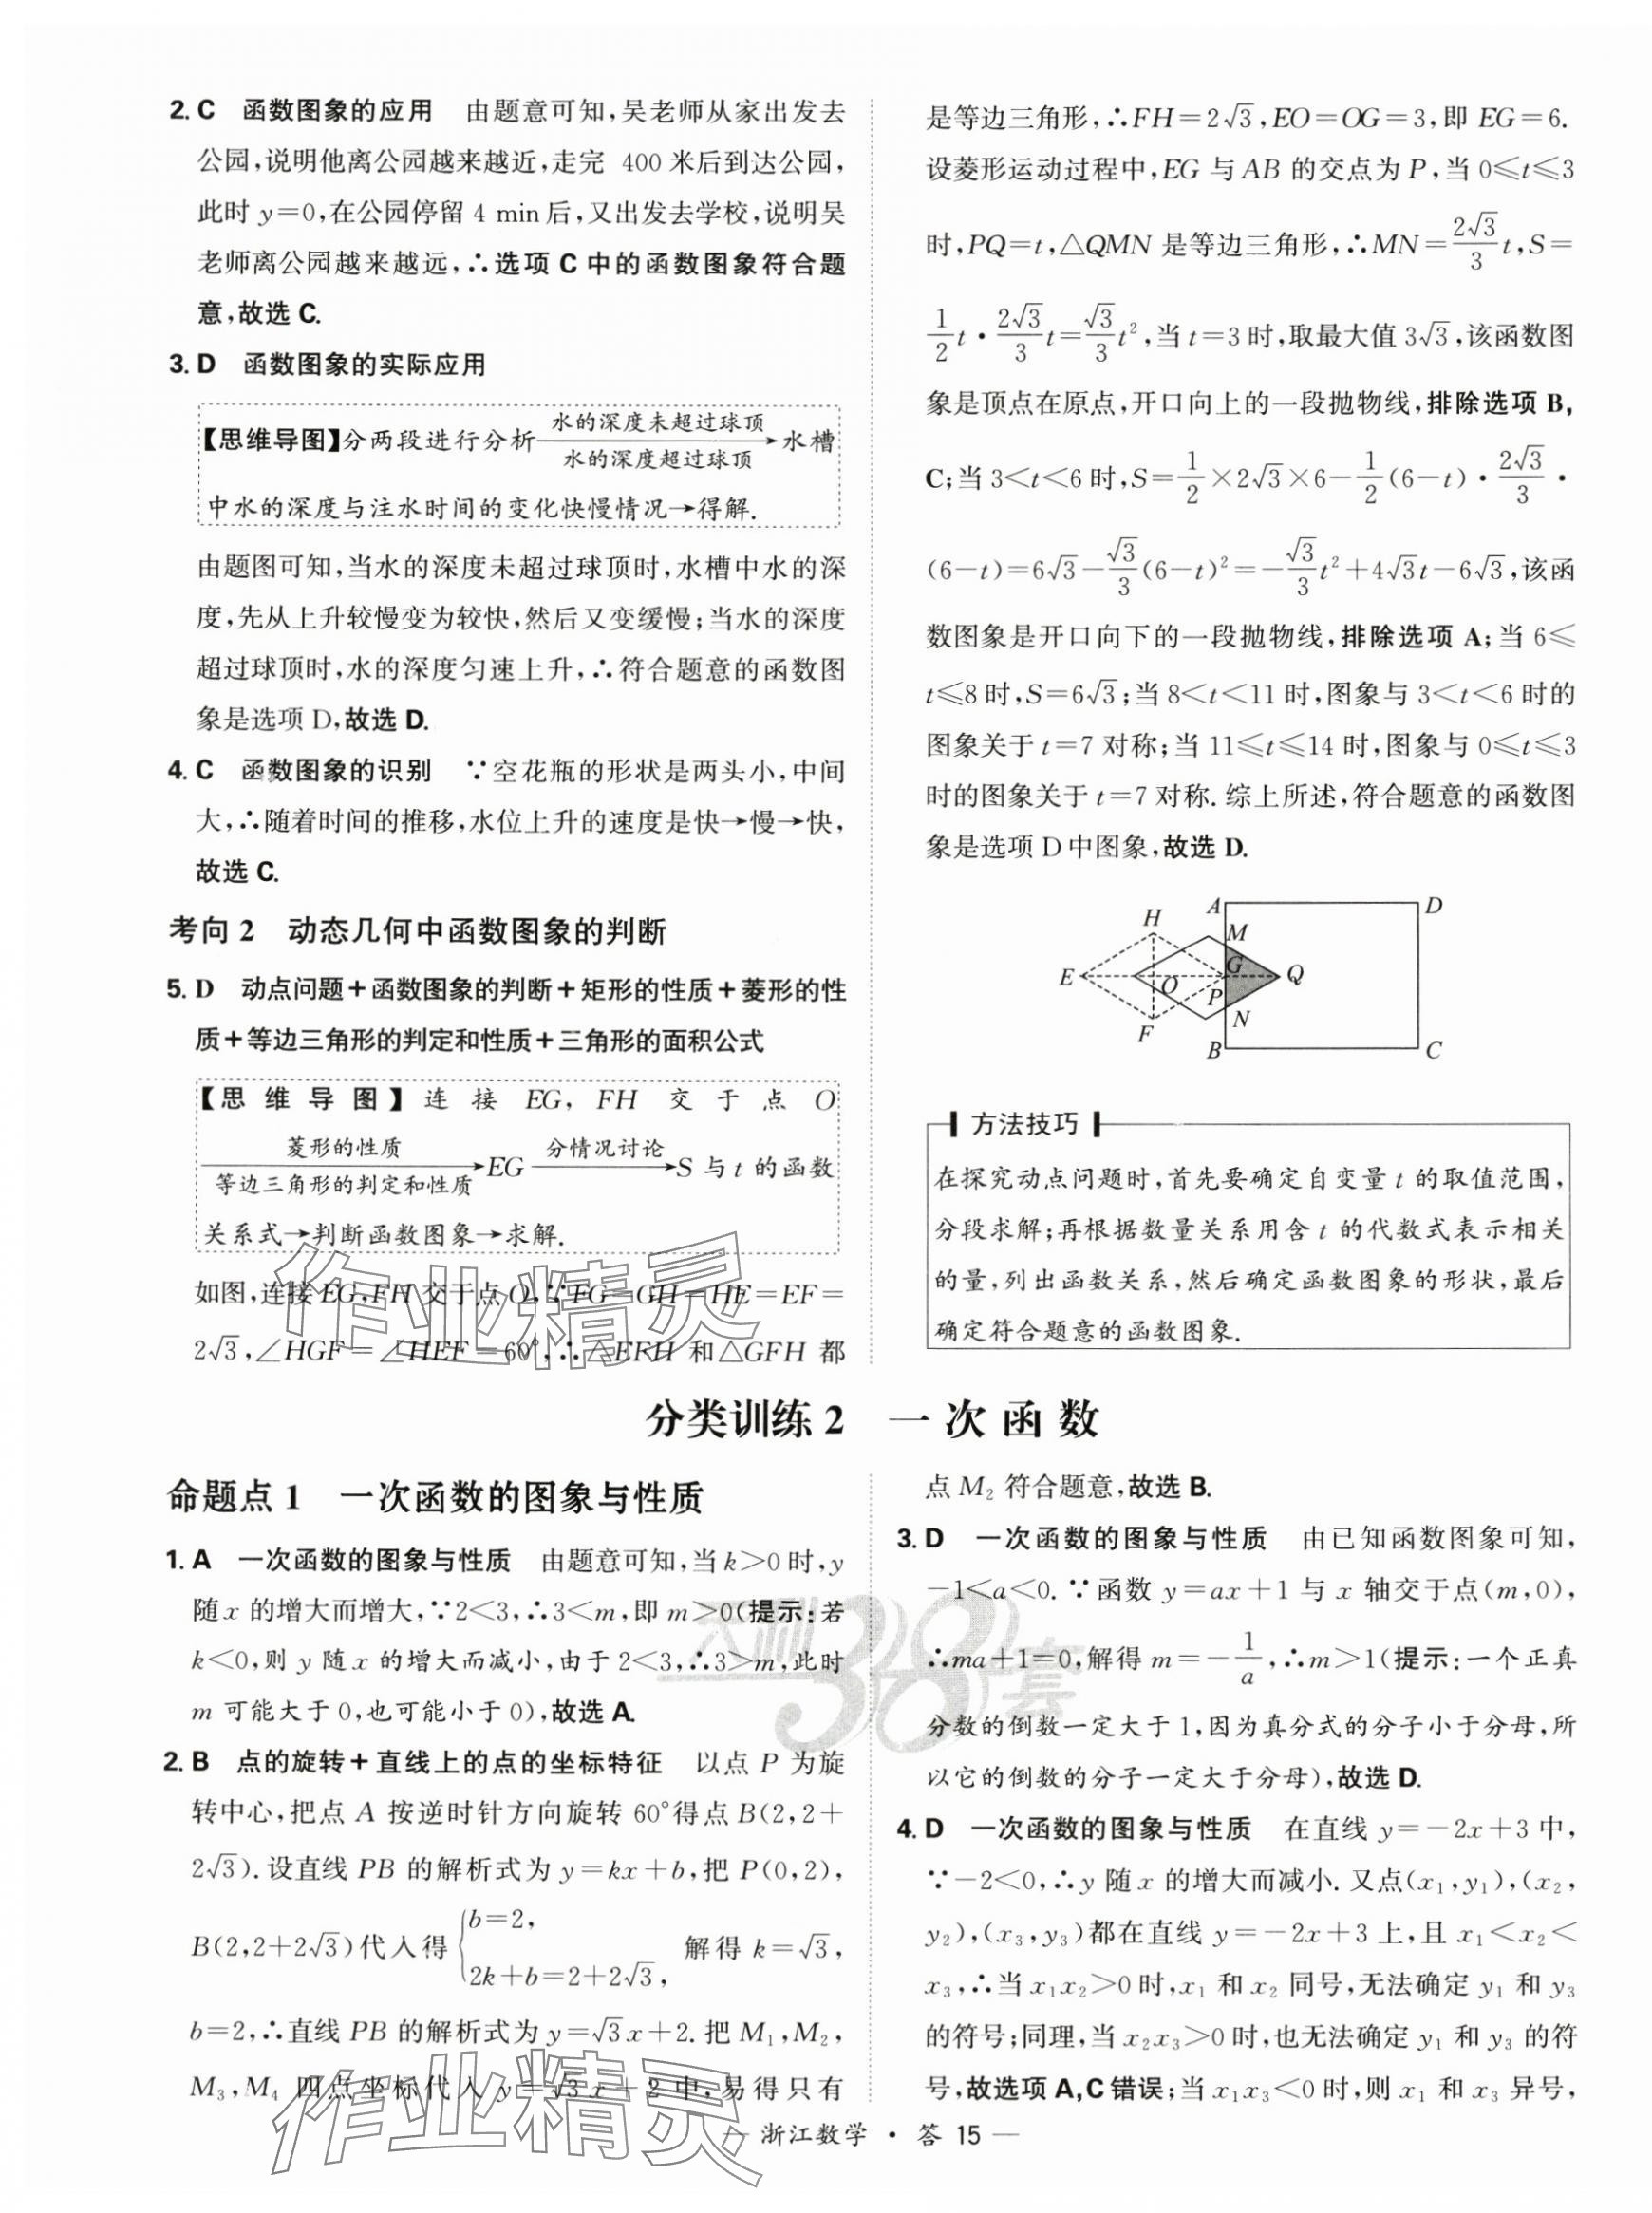 2. C 函数图象的应用 由题意可知,吴老师从家出发去
公园,说明他离公园越来越近,走完 400 米后到达公园,
此时 y=0,在公园停留 4 min后,又出发去学校,说明吴
老师离公园越来越远,∴选项 C 中的函数图象符合题
意,故选 C.
3. D 函数图象的实际应用
水的深度未超过球顶
【思维导图】分两段进行分析→水槽
水的深度超过球顶
中水的深度与注水时间的变化快慢情况→得解.
由题图可知,当水的深度未超过球顶时,水槽中水的深
度,先从上升较慢变为较快,然后又变缓慢;当水的深度
超过球顶时,水的深度匀速上升,∴符合题意的函数图
象是选项 D,故选 D.
4. C 函数图象的识别 ∵空花瓶的形状是两头小,中间
大,∴随着时间的推移,水位上升的速度是快→慢→快,
故选 C.
考向 2 动态几何中函数图象的判断
5. D 动点问题+函数图象的判断+矩形的性质+菱形的性
质+等边三角形的判定和性质+三角形的面积公式
【思维导图】连接 EG, FH 交于点 O
菱形的性质 分情况讨论
→EG→S 与 t 的函数
等边三角形的判定和性质
关系式→判断函数图象→求解.
如图,连接EG,FH 交于点 O,∵FG=GH=HE=EF=
2√3,∠HGF=∠HEF=60°,∴△EFH 和△GFH 都
是等边三角形,∴FH=2√3,EO=OG=3,即 EG=6.
设菱形运动过程中,EG 与 AB 的交点为 P,当 0≤t≤3
时,PQ=t,△QMN 是等边三角形,∴MN=2√3/3 t,S=
1/2 t·2√3/3 t=√3/3 t²,当 t=3 时,取最大值 3√3,该函数图
象是顶点在原点,开口向上的一段抛物线,排除选项 B,
C;当 3<t<6 时,S=1/2×2√3×6-1/2(6-t)·2√3/3·
(6-t)=6√3-√3/3(6-t)²=-√3/3 t²+4√3t-6√3,该函
数图象是开口向下的一段抛物线,排除选项 A;当 6≤
t≤8 时,S=6√3;当 8<t<11 时,图象与 3<t<6 时的
图象关于 t=7 对称;当 11≤t≤14 时,图象与 0≤t≤3
时的图象关于 t=7 对称. 综上所述,符合题意的函数图
象是选项 D 中图象,故选 D.
A D
H M
E O G Q
P
F N
B C
方法技巧
在探究动点问题时,首先要确定自变量 t 的取值范围,
分段求解;再根据数量关系用含 t 的代数式表示相关
的量,列出函数关系,然后确定函数图象的形状,最后
确定符合题意的函数图象.
分类训练 2 一次函数
命题点 1 一次函数的图象与性质
1. A 一次函数的图象与性质 由题意可知,当 k>0 时,y
随 x 的增大而增大,∵2<3,∴3<m,即 m>0(提示:若
k<0,则 y 随 x 的增大而减小,由于 2<3,∴3>m,此时
m 可能大于 0,也可能小于 0),故选 A.
2. B 点的旋转+直线上的点的坐标特征 以点 P 为旋
转中心,把点 A 按逆时针方向旋转 60°得点 B(2,2+
2√3). 设直线 PB 的解析式为 y=kx+b,把 P(0,2),
B(2,2+2√3)代入得{b=2, 2k+b=2+2√3, 解得 k=√3,
b=2,∴直线 PB 的解析式为 y=√3x+2. 把 M₁,M₂,
M₃,M₄ 四点坐标代入 y=√3x+2 中,易得只有
点 M₂ 符合题意,故选 B.
3. D 一次函数的图象与性质 由已知函数图象可知,
-1<a<0. ∵函数 y=ax+1 与 x 轴交于点(m,0),
∴ma+1=0,解得 m=-1/a,∴m>1(提示:一个正真
分数的倒数一定大于 1,因为真分式的分子小于分母,所
以它的倒数的分子一定大于分母),故选 D.
4. D 一次函数的图象与性质 在直线 y=-2x+3 中,
∵-2<0,∴y 随 x 的增大而减小. 又点(x₁,y₁),(x₂,
y₂),(x₃,y₃)都在直线 y=-2x+3 上,且 x₁<x₂<
x₃,∴当 x₁x₂>0 时,x₁ 和 x₂ 同号,无法确定 y₁ 和 y₃
的符号;同理,当 x₂x₃>0 时,也无法确定 y₁ 和 y₃ 的符
号,故选项 A,C 错误;当 x₁x₃<0 时,则 x₁ 和 x₃ 异号,
— 浙江数学 · 答 15 —
作业精灵
天利38套
作业精灵